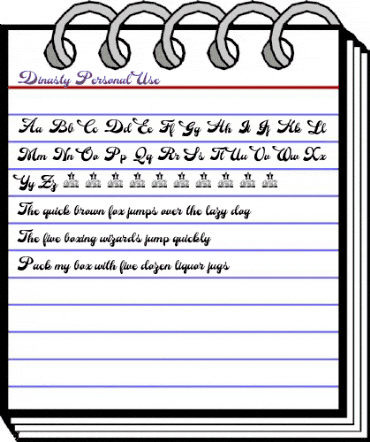 Dinasty Personal Use
Aa Bb Cc Dd Ee Ff Gg Hh Ii Jj Kk Ll
Mm Nn Oo Pp Qq Rr Ss Tt Uu Vv Ww Xx
Yy Zz
The quick brown fox jumps over the lazy dog
The five boxing wizards jump quickly
Pack my box with five dozen liquor jugs